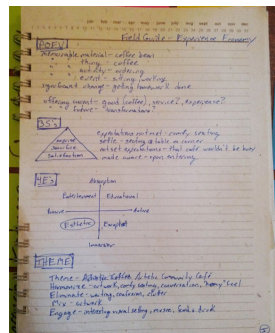 Field Guide - Experience Economy
POEV
memorable material - coffee bean
" thing - coffee
" activity - ordering
" event - sitting/working
significant change - getting homework done
offering point - good (coffee), service?, experience?
" future - transformation?
3S's
Surprise
Sacrifice
Satisfaction
expectations not met - comfy seating
settle - seating @ table in corner
outset expectations - that cafe wouldn't be busy
made aware - upon entering
4E's
Absorption
Entertainment
Educational
Passive
Active
Esthetic
Escapist
Immersion
THEME
Theme - Artistic Community Café
Harmonize - artwork, comfy seating, conversation, "homey" feel
Eliminate - waiting, confusion, clutter
Mix - artwork
Engage - interesting visual setting, music, food & drink